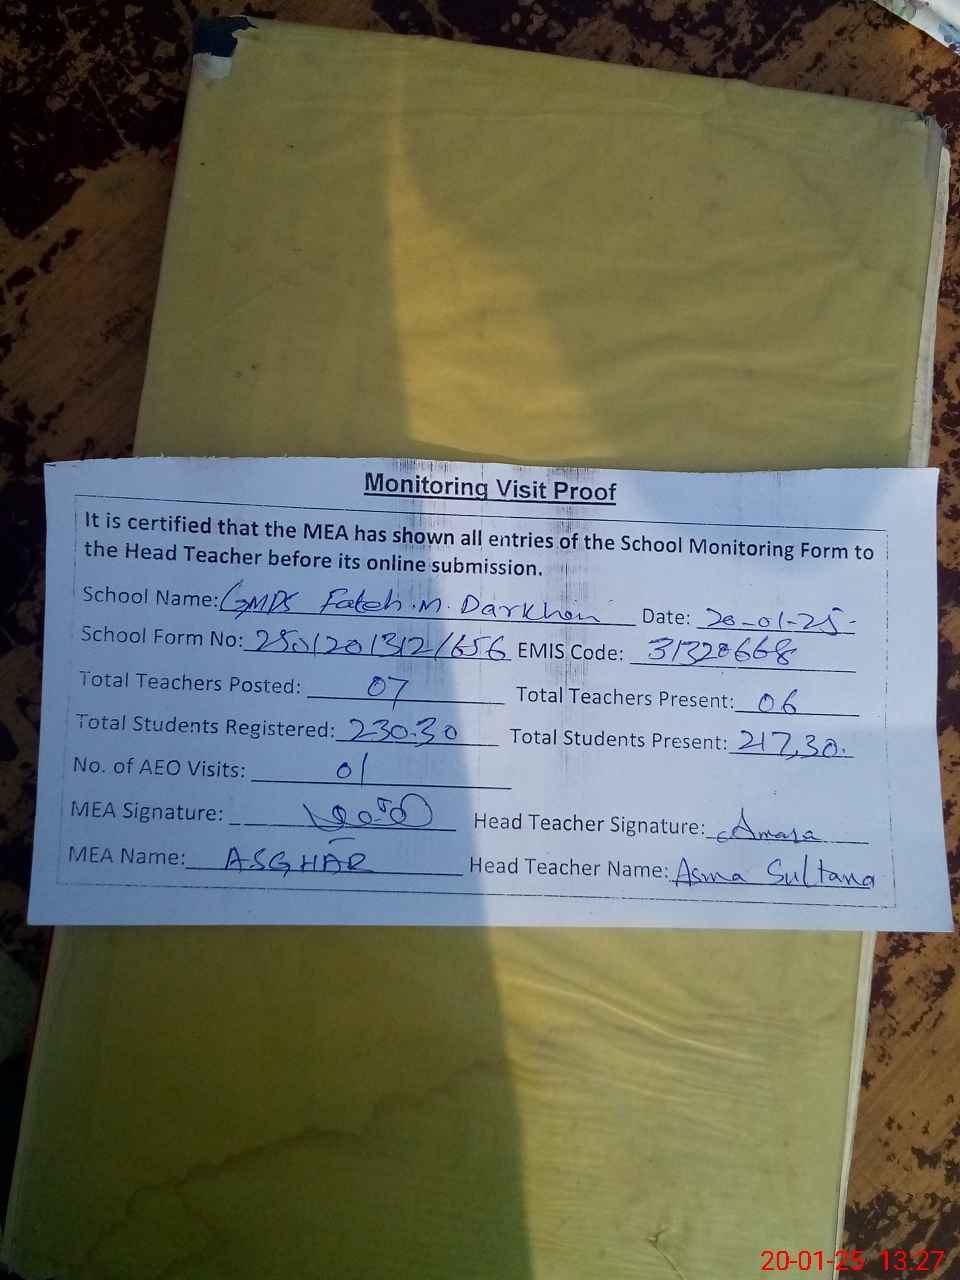 Monitoring Visit Proof
It is certified that the MEA has shown all entries of the School Monitoring Form to
the Head Teacher before its online submission.
School Name: GMPS Fateh.M. Darkhan Date: 20-01-25
School Form No: 2501201312/656 EMIS Code: 31320668
Total Teachers Posted: 07 Total Teachers Present: 06
Total Students Registered: 230.30 Total Students Present: 217,30.
No. of AEO Visits: 01
MEA Signature: Head Teacher Signature:
MEA Name: ASGHAR Head Teacher Name: Asma Sultana
20-01-25 13:27